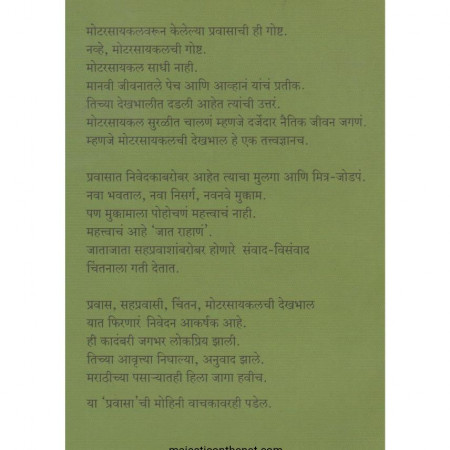 मोटरसायकलवरून केलेल्या प्रवासाची ही गोष्ट.
नव्हे, मोटरसायकलची गोष्ट.
मोटरसायकल साधी नाही.
मानवी जीवनातले पेच आणि आव्हानं यांचं प्रतीक.
तिच्या देखभालीत दडली आहेत त्यांची उत्तरं.
मोटरसायकल सुरळीत चालणं म्हणजे दर्जेदार नैतिक जीवन जगणं.
म्हणजे मोटरसायकलची देखभाल हे एक तत्त्वज्ञानच.
प्रवासात निवेदकाबरोबर आहेत त्याचा मुलगा आणि मित्र-जोडपं.
नवा भवताल, नवा निसर्ग, नवनवे मुक्काम.
पण मुक्कामाला पोहोचणं महत्त्वाचं नाही.
महत्त्वाचं आहे 'जात राहाणं'.
जाताजाता सहप्रवाशांबरोबर होणारे संवाद-विसंवाद
चिंतनाला गती देतात.
प्रवास, सहप्रवासी, चिंतन, मोटरसायकलची देखभाल
यात फिरणारं निवेदन आकर्षक आहे.
ही कादंबरी जगभर लोकप्रिय झाली.
तिच्या आवृत्त्या निघाल्या, अनुवाद झाले.
मराठीच्या पसाऱ्यातही हिला जागा हवीच.
या 'प्रवासा'ची मोहिनी वाचकावरही पडेल.